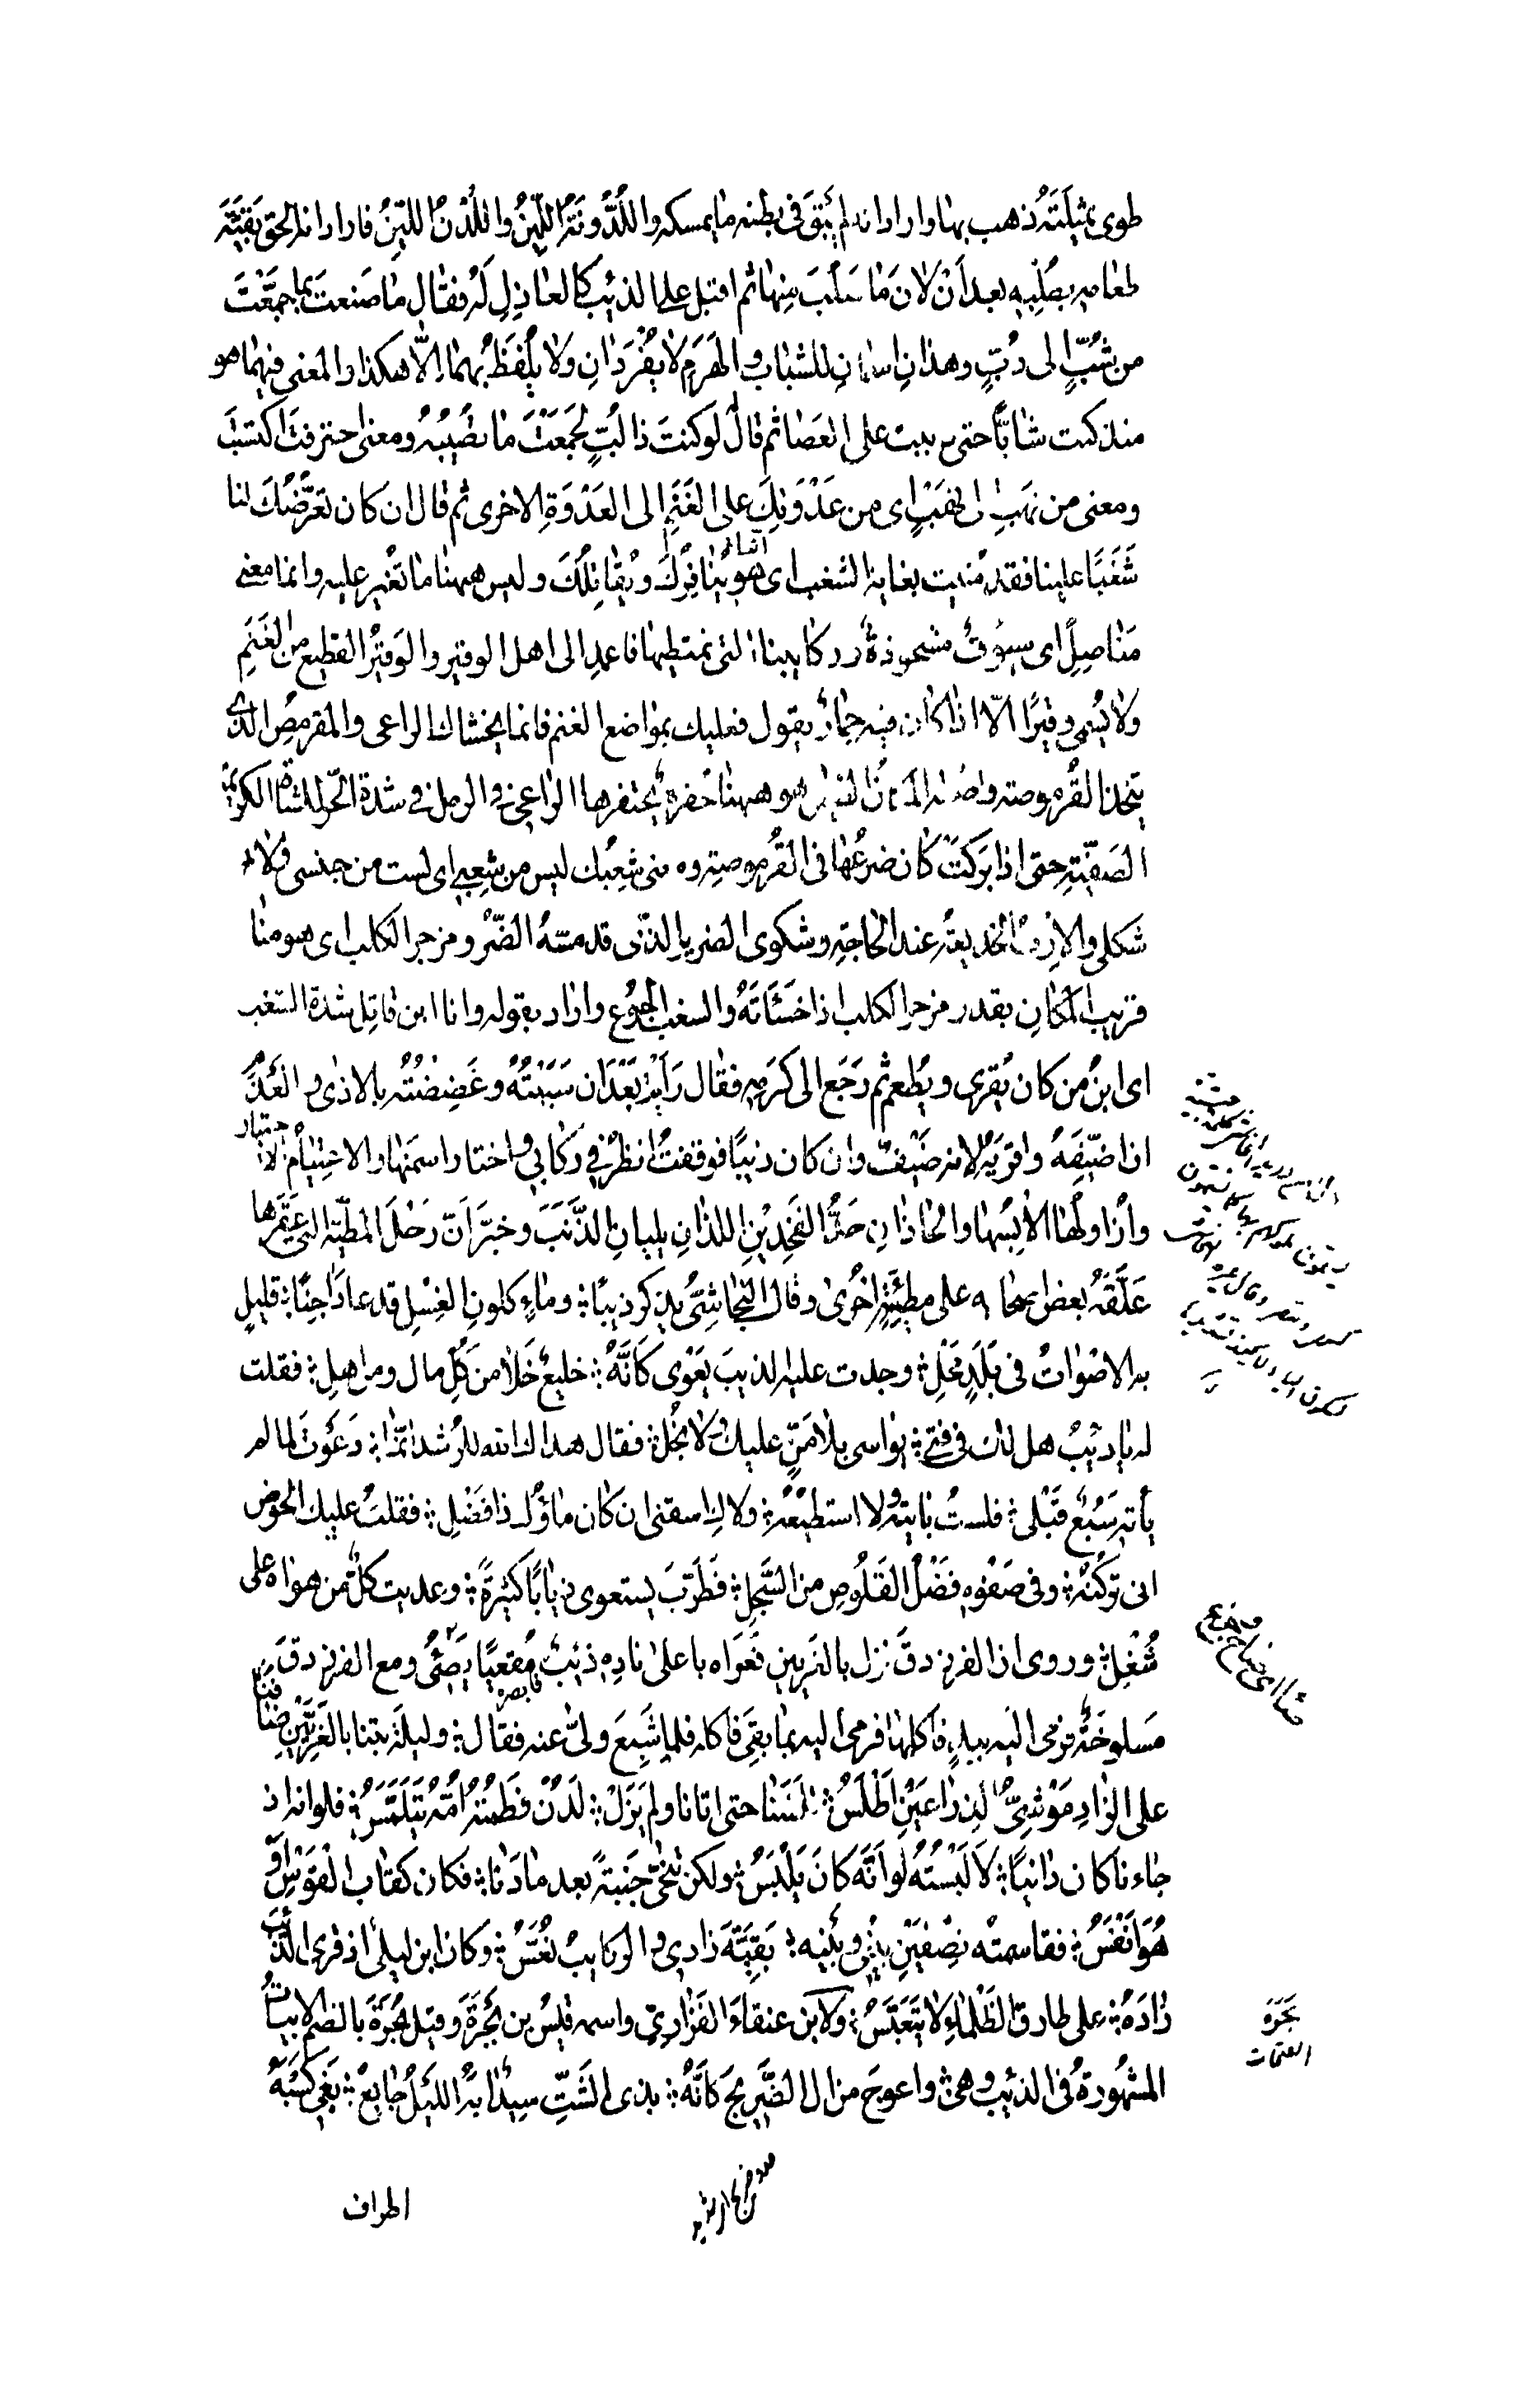 طوى ثميلَتَهُ ذهب بها وارادا انه لم يُبْقَ فى بطنه ما يمسكه واللُّدُّونَةُ اللِّينُ واللُّدْنُ اللَّيِّنُ فارادا انه الحق بَقِيَّةَ
طعامه بصُلبِه بعد أَنْ لانَ مَا صَلُبَ مِنها ثم اقبل على الذئب كالعاذِلِ لَهُ فقال ما صنعتَ بما جمَّعْتَ
من شُبٍّ الى دُبٍّ وهذانِ اسمانِ للشباب والهَرَمِ لا يُفْرَدَانِ ولا يُلْفَظُ بهما الّا هكذا والمعنى فيهما هو
منذ كنت شابًّا حتى دببت على العَصَا ثم قال لو كنتَ ذا لُبٍّ لجَمَعْتَ ما تُصِيبُهُ ومعنى احترفت اكتسبْتَ
ومعنى من نهبٍ الى نهبٍ اى من عَدْوَتِكَ على الغَنَمِ الى العَدْوَةِ الاخرى ثم قال ان كان تَعَرُّضُكَ لنا
شَغَبًا علينا فقد مُنيت بغاية الشغب اى هو يُنافِرُكَ ويُقاتِلُكَ وليس ههنا ما تُغير عليه وانما معنى
مَناصِلُ اى سيوفٌ مشحوذةٌ وركايبنا التى نمتطيها فاعمد الى اهل الوقير والوَقيرُ القطيع من الغَنَمِ
ولا يُسمى وقيرًا الّا اذا كان فيه حِمارٌ يقول فعليك بمواضع الغنم فانما يخشاك الراعى والمقرمِصُ الذى
يتخذ القُرموصة وهو ههنا حُفرةٌ يحتفرها الراعى فى الرمل فى شدة الحَرّ للشاة الكريمة
الصَفِيَّةِ حتى اذا بَرَكَتْ كان ضرعُها فى القُرموصة ومعنى شِعبُك ليس من شِعبى اى لست من جنسى ولا
شكلى والإربُ الخديعةُ عند الحاجة وشكوى الضرير الذّى قد مسَّهُ الضّرُّ ومزجر الكلب اى هو منّا
قريب المَكانِ بقدر مزجر الكلب اذا خَسَأتَهُ والسغب الجوُع واراد بقوله وانا ابن قاتِل شدة السّغب
اى ابنُ من كان يُقرى ويُطعم ثم رَجَع الى كرَمِه فقال رَأَيْتُ بَعْدَ ان سَبَبْتُهُ وغَضِضْتُهُ بالاذى والعَذْلِ
ان اضيِّفَهُ واقرَيَهُ لانه ضَيْفٌ وان كان ذئبًا فوقفتُ انظرُ فى رَكابى واختار اسمَنَها والاعتِيامُ الاختيار
وازاولُها الابِسُها والحاذانِ حَدُّ الفَخِذَيْنِ اللذانِ يليانِ الذَّنَبَ وخبَّرَ اَنّ رَحْلَ المطيّة التى عَقَرها
عَلَّقَهُ بعض اصحابه على مطِيَّةٍ اُخْرى وقال النجّاشِىُّ يذكر ذيبًا ؛ وماءٍ كلونِ الغِسْلِ قد عادَ اٰجِنًا ؛ قليلٍ
به الاصْواتُ فى بَلَدٍ مَحْلِ ؛ وجدت عليه الذيبَ يَعْوِى كَأنَّهُ ؛ خليعٌ خَلا من كُلِّ مال ومن اهلِ ؛ فقلت
له يا ذئبُ هل لك فى فتى ؛ يواسى بلا مَنٍّ عليكَ ولا بُخْلِ ؛ فقال هداك الله للرُشد انّما ؛ دَعَوْتَ لما لم
يأته سَبُعٌ قَبْلى ؛ فلستُ بآتيهِ ولا استطيعُهُ ؛ ولاكِ اسقنى ان كان ماؤُك ذا فَضْلِ ؛ فقلتُ عليك الحوض
انى تركتُهُ ؛ وفى صَفْوِهِ فَضْلُ القَلُوصِ من السَّجْلِ ؛ فَطَرَّبَ يستعوى ذيابًا كثيرةً ؛ وعديت كلٌّ من هواه على
شُغْلِ ؛ وروى ان الفرزدقَ نزل بالغريين فعَرَاه باعلى نارِهِ ذئبٌ فابصره مُقعيًا يَصْئَى ومع الفرزدق
مَسلوخَةٌ فرمى اليه بيدٍ فاكلها فرمى اليه بما بقى فاكله فلما شَبِعَ ولّى عنه فقال ؛ وليلةَ بتنا بالغَرِيَّيْنِ ضافنا
على الزادِ مَوْشِىُّ الذِراعَيْنِ اَطْلَسُ ؛ تلمَّسَنا حتى اتانا ولم يَزَلْ ؛ لَدُنْ فَطَمَتْهُ اُمُّهُ يَتَلَمَّسُ ؛ فلو انه اذ
جاءنا كان دانيًا ؛ لَاَلْبَسْتُهُ لو اَنَّهَ كانَ يَلْبَسُ ؛ ولكن تنحّى جَنبَةً بعد ما دَنا ؛ فكان كقاب القَوْسِ اَوْ
هُوَ اَنْفَسُ ؛ فقاسمته نِصْفَيْنِ بينى وبينه ؛ بَقِيَّةَ زادى والركايبُ نُعَّسُ ؛ وكان ابن ليلى اذ قرى الذئبَ
زادَهُ ؛ على طارق الظَلماءِ لا يَتَعَبَّسُ ؛ ولابن عنقاءَ الفَزارِىِّ واسمه قيسُ بن بَجْرَةَ وقيل بُجْرَةَ بالضم الابياتُ
المشهُورةُ فى الذئب وهى ؛ واعوجَ من اٰل الضَّرِيحِ كأنَّهُ ؛ بذى الشَثِّ سِيْدٌ اٰبَهُ الليلُ جايعٌ ؛ بغى كسبَهُ
بَجَرَة
اطراف